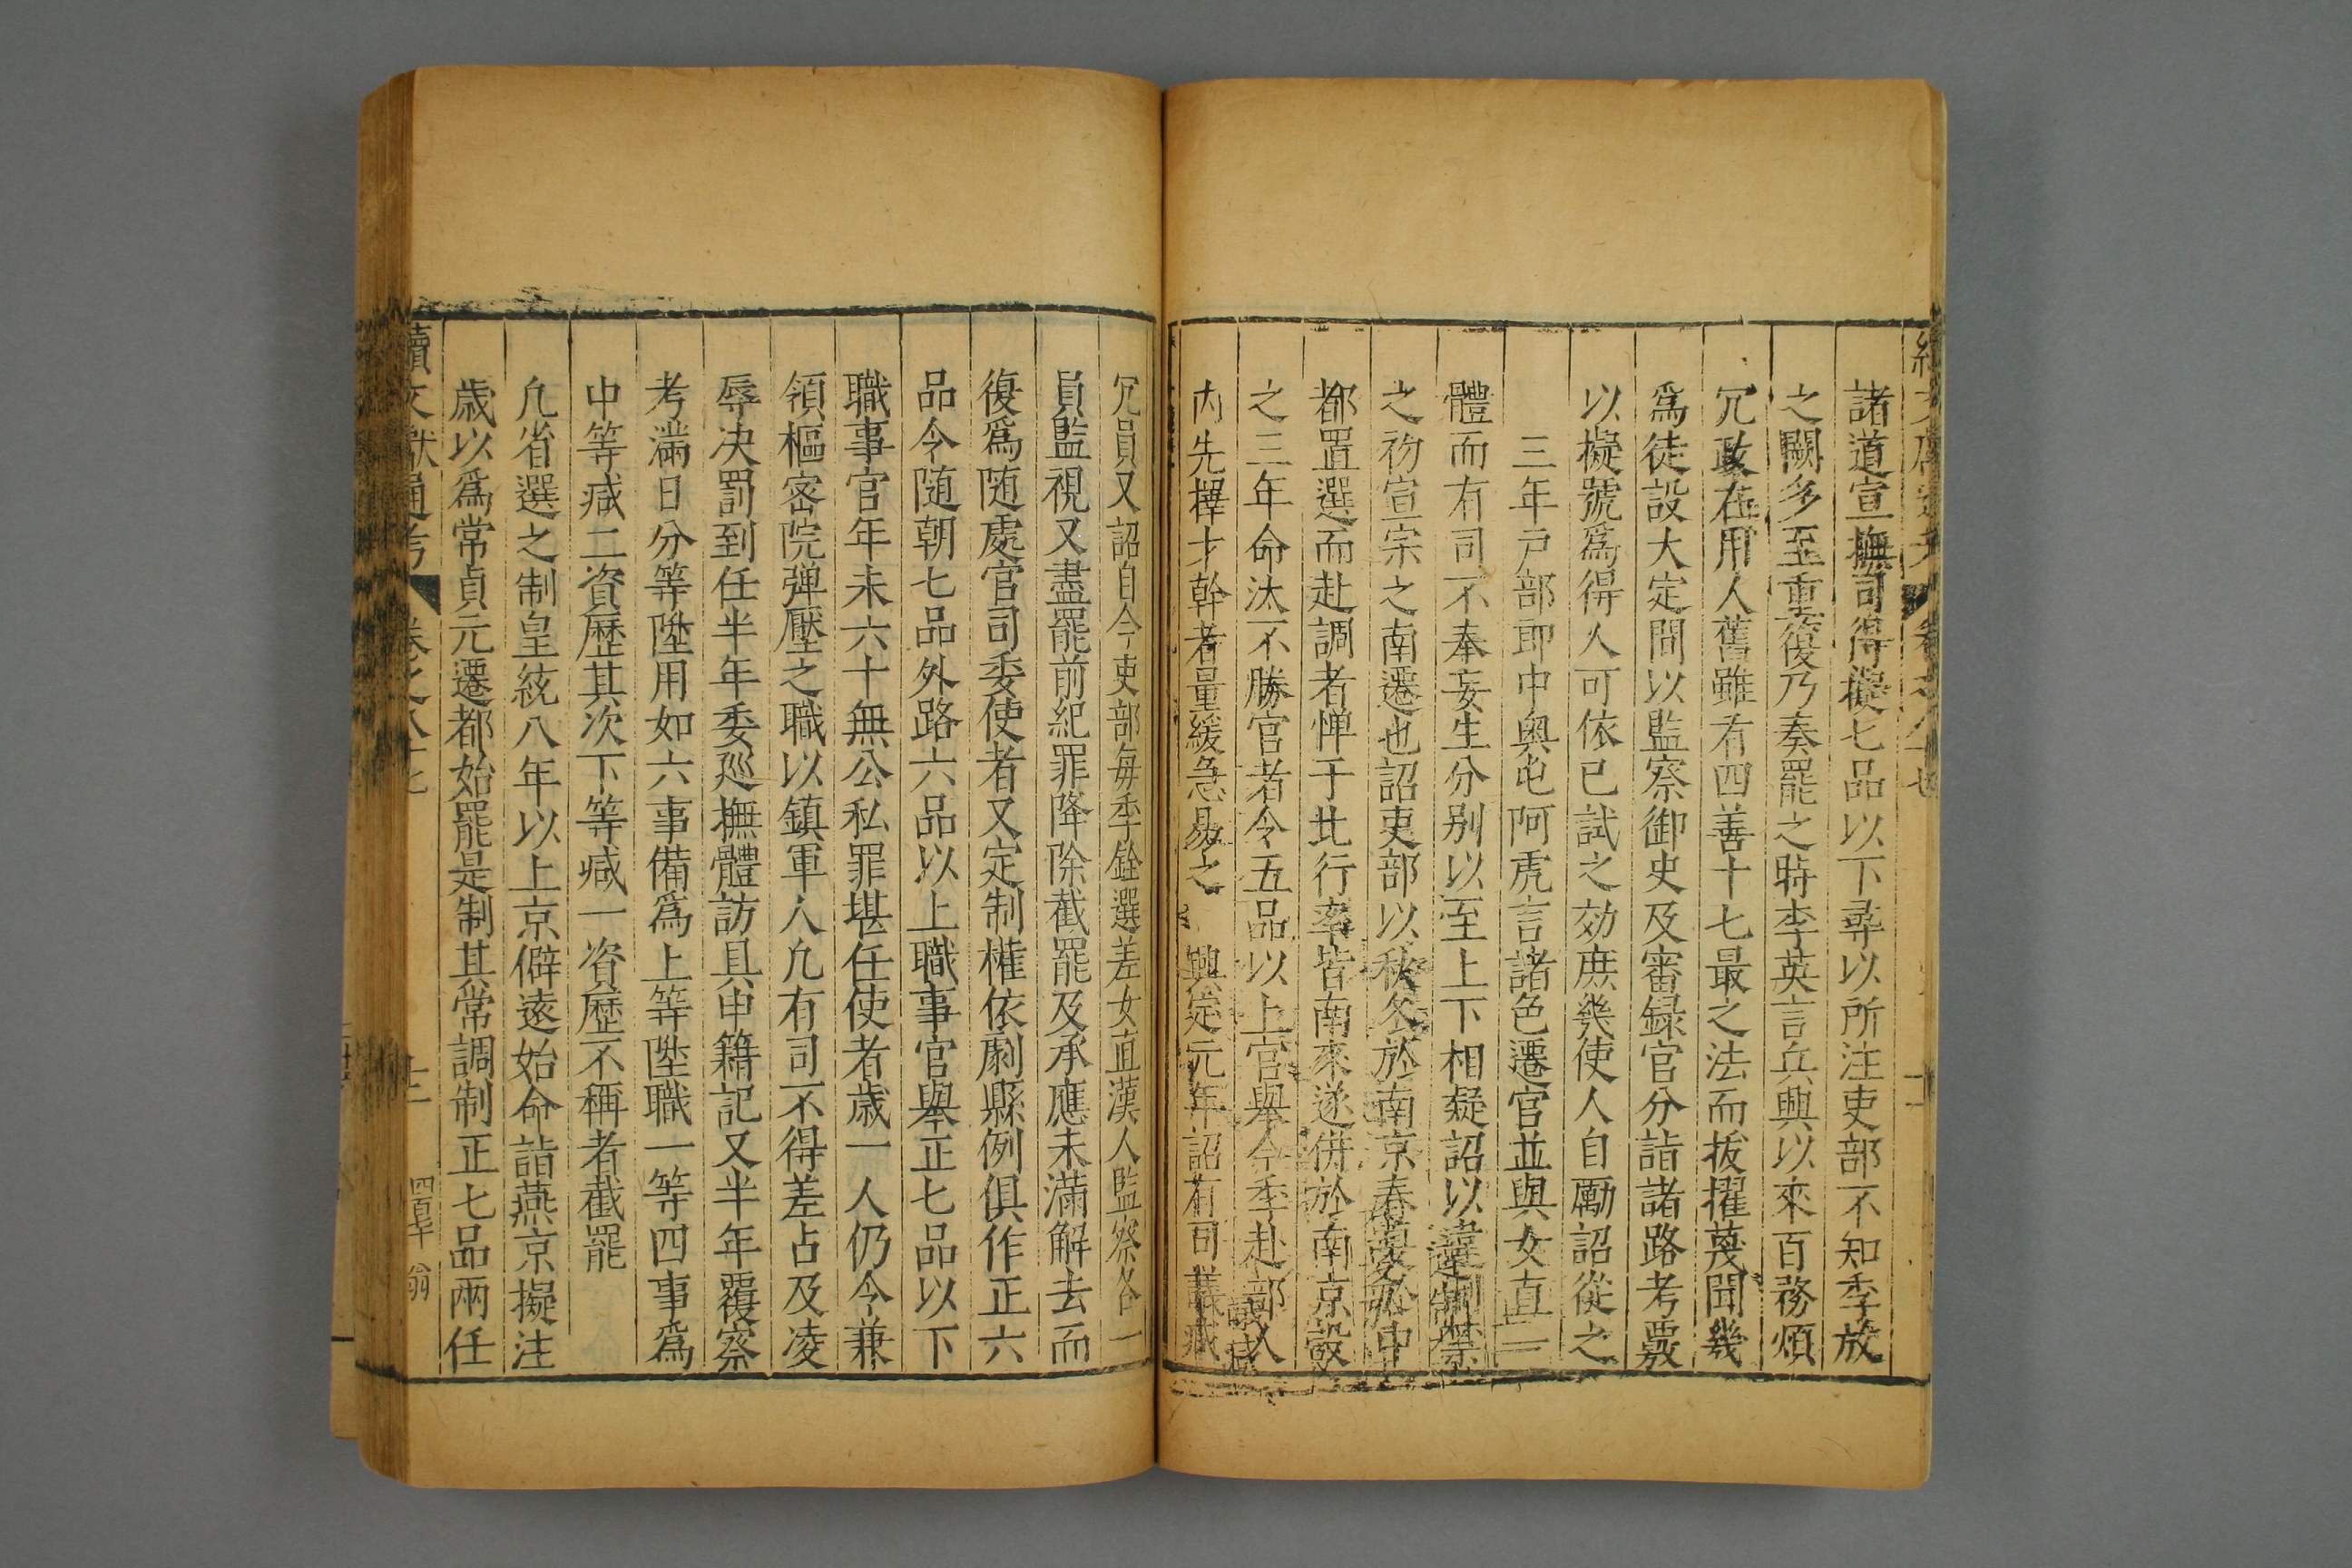 諸道宣撫司得擬七品以下尋以所注吏部不知季放
之闕多至重復乃奏罷之時李英言兵興以來百務煩
冗政在用人舊雖有四善十七最之法而拔擢蔑聞幾
爲徒設大定間以監察御史及審録官分詣諸路考覈
以擬號爲得人可依已試之効庶幾使人自勵詔從之
三年戸部郎中奧屯阿虎言諸色遷官並與女直一
體而有司不奉妄生分别以至上下相疑詔以違制禁
之初宣宗之南遷也詔吏部以秋冬於南京春夏於中
都置選而赴調者憚于北行率皆南來遂併於南京設
之三年命汰不勝官者令五品以上官舉今季赴部人
内先擇才幹者量緩急易之 興定元年詔有司議減
冗員又詔自今吏部每季銓選差女直漢人監察各一
員監視又盡罷前紀罪降除截罷及承應未滿解去而
復爲隨處官司委使者又定制權依劇縣例俱作正六
品令随朝七品外路六品以上職事官舉正七品以下
職事官年未六十無公私罪堪任使者歲一人仍令兼
領樞密院彈壓之職以鎮軍人凢有司不得差占及凌
辱决罰到任半年委廵撫體訪具申籍記又半年覆察
考滿日分等陞用如六事備爲上等陞職一等四事爲
中等减二資歷其次下等减一資歷不稱者截罷
凢省選之制皇統八年以上京僻遠始命詣燕京擬注
歲以爲常貞元遷都始罷是制其常調制正七品兩任
續文獻通考 卷之八十七